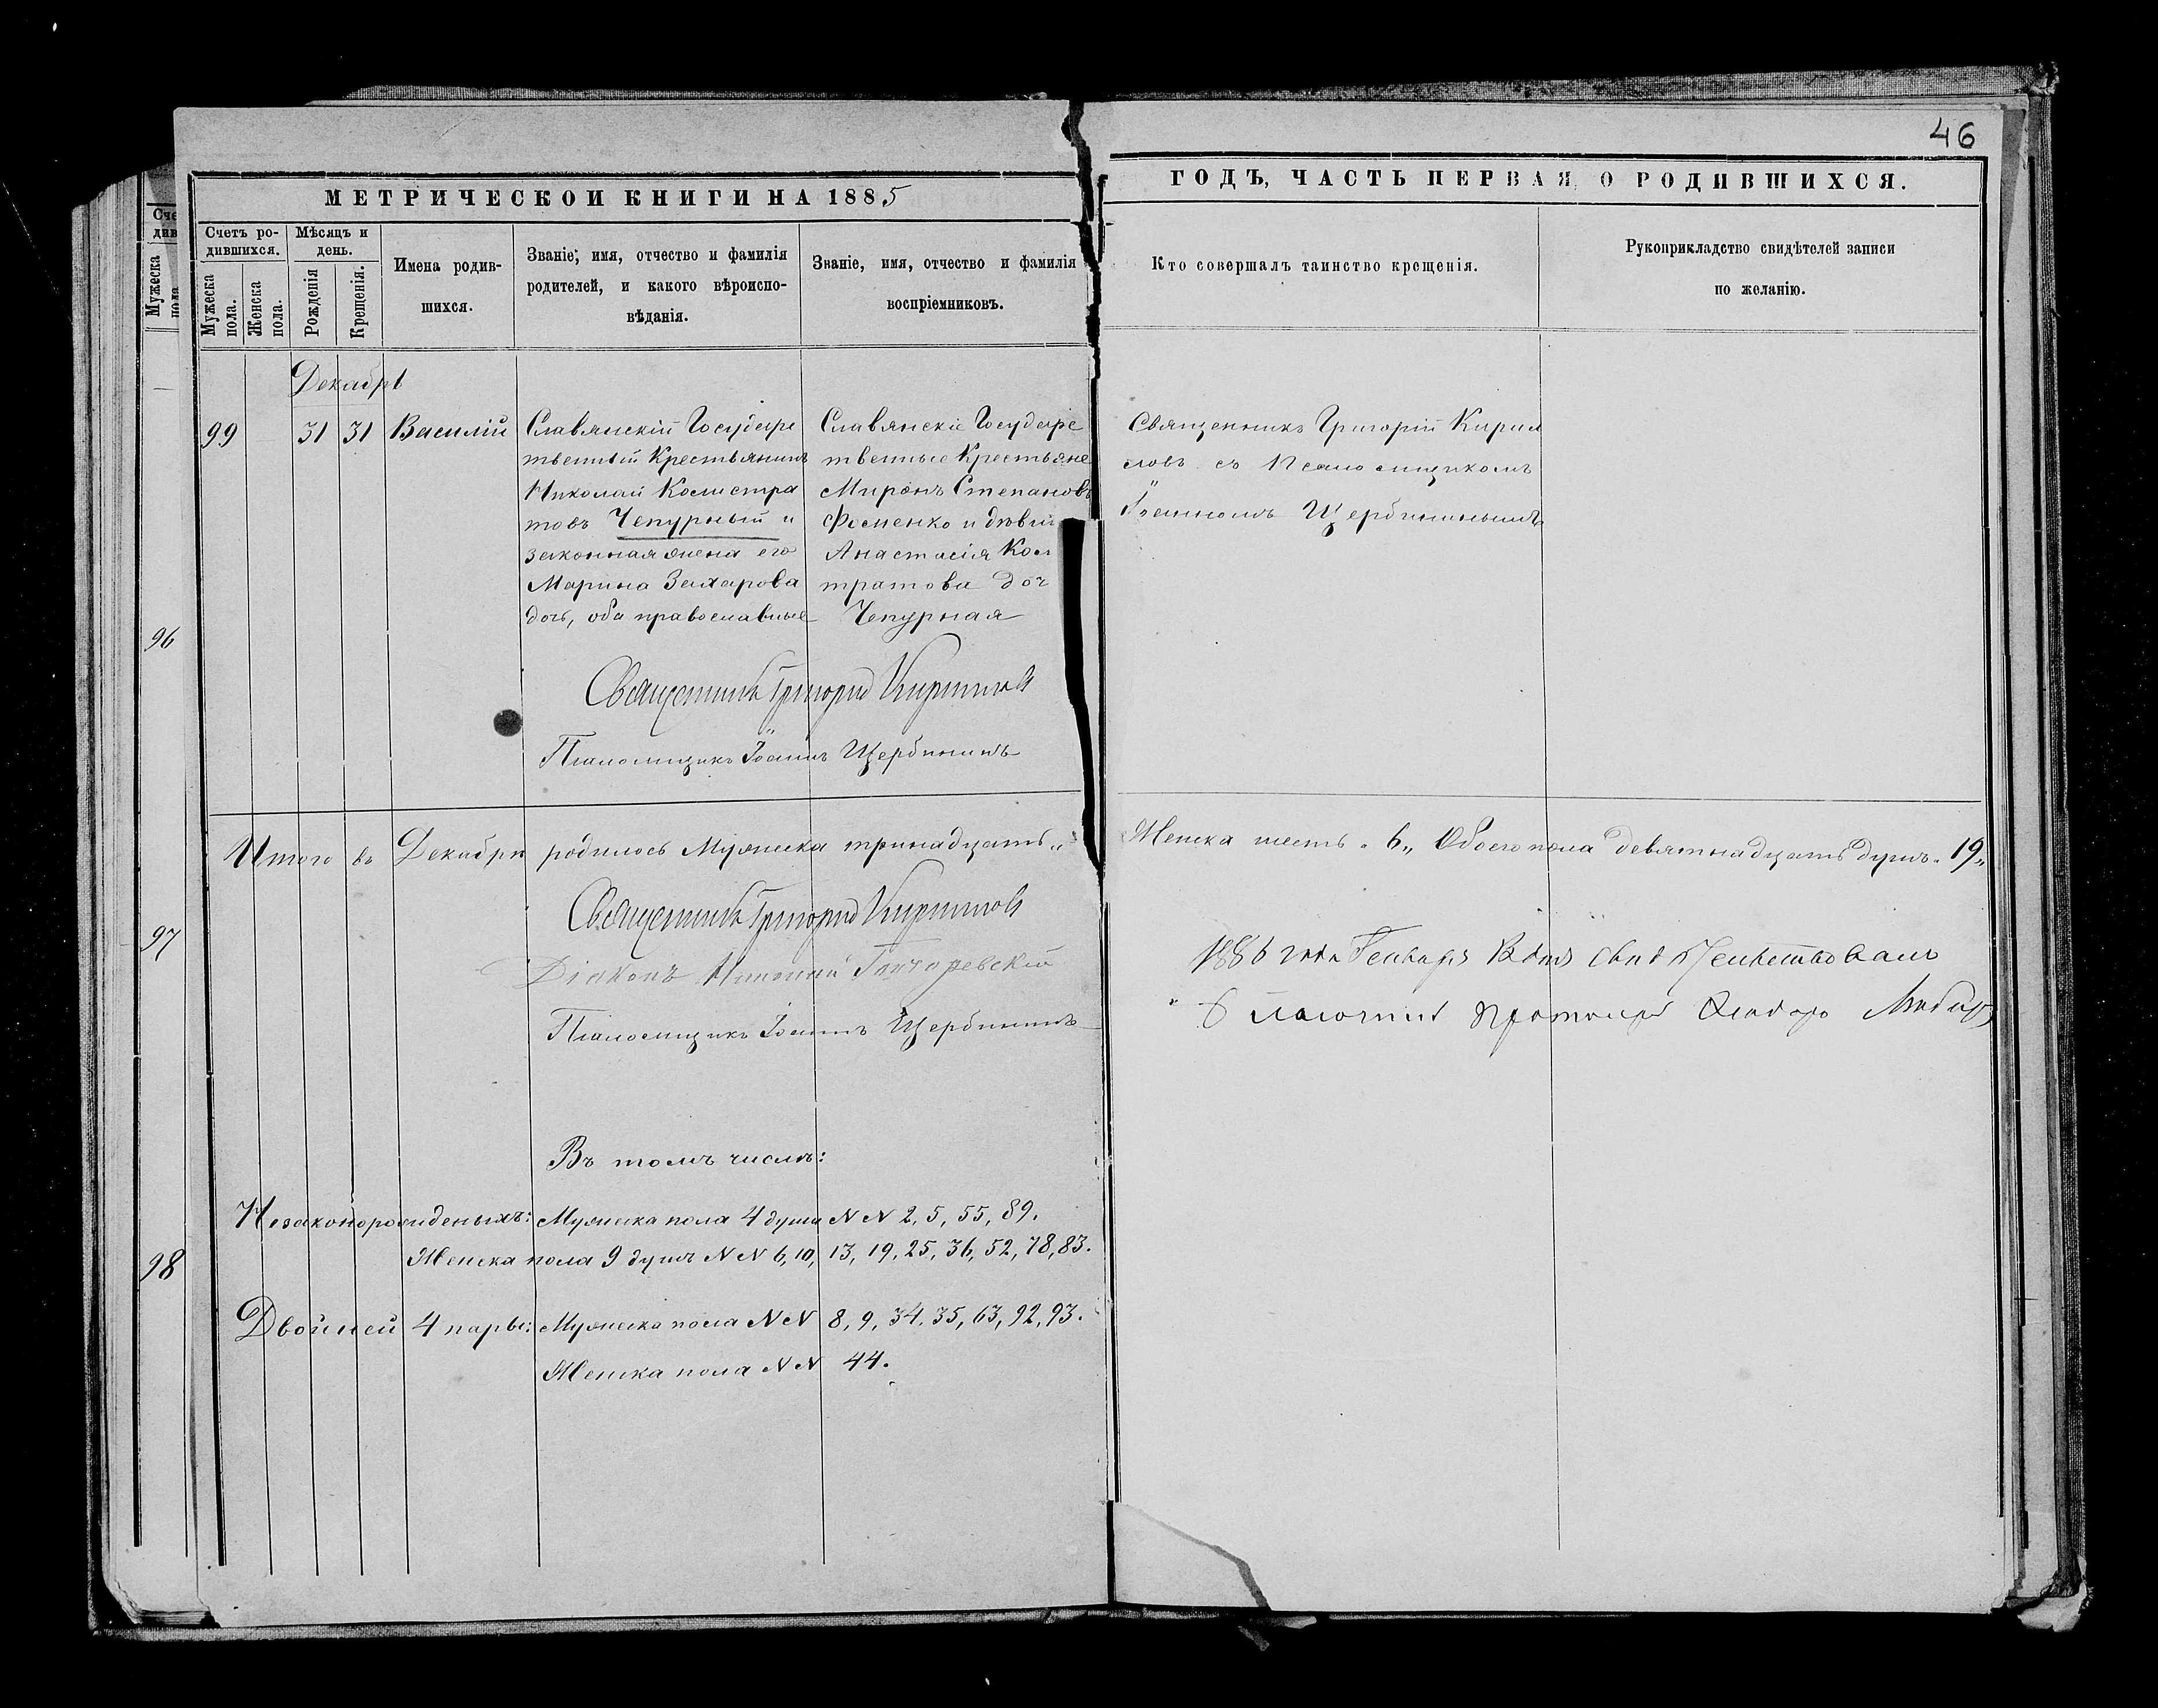 46
МЕТРИЧЕСКОЙ КНИГИ НА 1885
ГОДЪ, ЧАСТЬ ПЕРВАЯ, О РОДИВШИХСЯ.
Счетъ ро-
дившихся.
Мужеска
пола.
Женска
пола.
Мѣсяцъ и
день.
Рожденія
Крещенія.
Имена родив-
шихся.
Званіе, имя, отчество и фамилія
родителей, и какого вѣроиспо-
вѣданія.
Званіе, имя, отчество и фамилія
воспріемниковъ.
Кто совершалъ таинство крещенія.
Рукоприкладство свидѣтелей записи
по желанію.
Мужеска
96
97
98
Декабрь
99 31 31 Василій
Славянскій Государс
твенный Крестьянинъ
Николай Калистра
товъ Чепурный и
законная жена его
Марина Захарова
дочь, оба православные
Славянскіе Государс
твенные Крестьяне
Миронъ Степановъ
Фоменко и дѣвица
Анастасія Кал
тратова доч
Чепурная
Священникъ Григорій Кирил
ловъ съ Псаломщикомъ
Іоанномъ Щербининымъ
Священникъ Григорій Кирилловъ
Псаломщикъ Іоаннъ Щербининъ
Итого въ Декабрѣ родилось Мужеска тринадцать
Женска шесть „6„ Обоего пола девятнадцать душъ „19„
Священникъ Григорій Кирилловъ
Діаконъ Николай
Псаломщикъ Іоаннъ Щербининъ
1886 года Генваря
Въ томъ числѣ:
Незаконорожденыхъ: Мужеска пола 4 души N N 2, 5, 55, 89.
Женска пола 9 душъ N N 6, 10, 13, 19, 25, 36, 52, 78, 83.
Двойней 4 пары: Мужеска пола N N 8, 9, 34, 35, 63, 92, 93.
Женска пола N N 44.